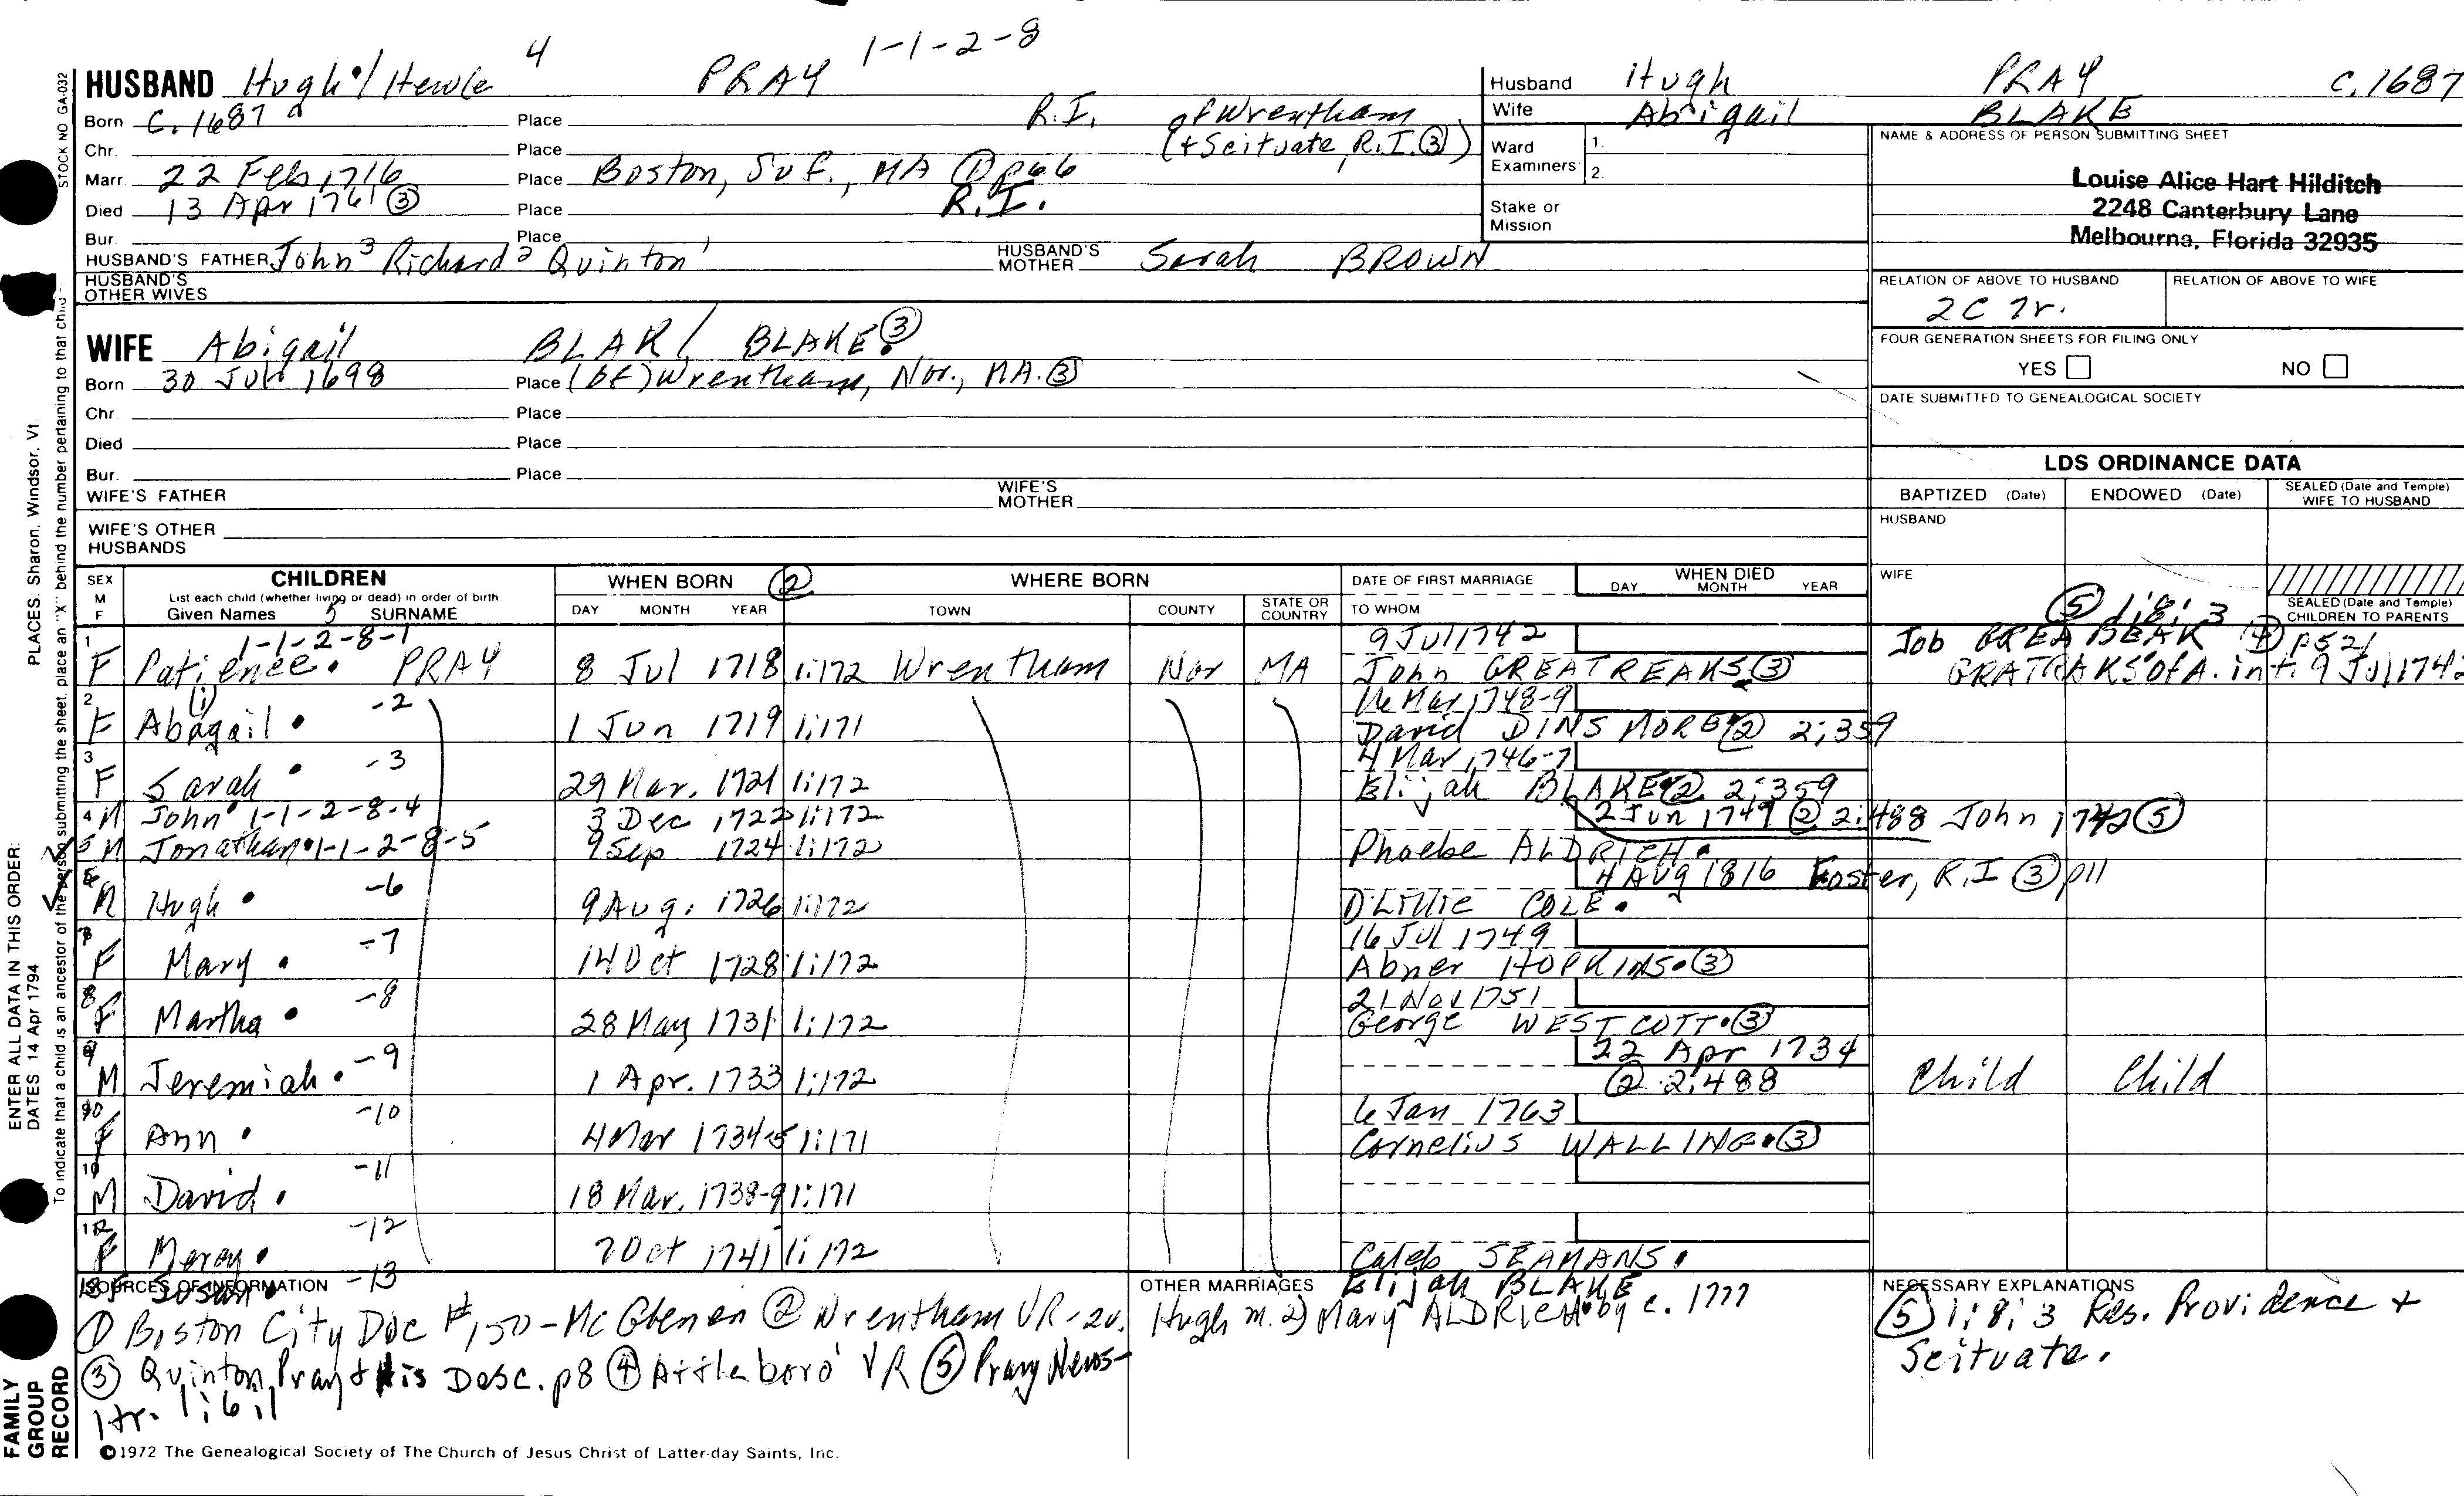 4 1-1-2-8
HUSBAND Hugh/Hewle PRAY
Born C. 1687 Place R.I. of Wrentham
Chr. Place (+ Scituate, R.I. ③)
Marr. 22 Feb 1716 Place Boston, Suf., MA ① p66
Died 13 Apr 1761 ③ Place R.I.
Bur. Place
HUSBAND'S FATHER John³ Richard² Quinton¹ HUSBAND'S MOTHER Sarah BROWN
HUSBAND'S OTHER WIVES
WIFE Abigail BLAK/ BLAKE? ③
Born 30 Jul 1698 Place (of) Wrentham, Nor., MA. ③
Chr. Place
Died Place
Bur. Place
WIFE'S FATHER WIFE'S MOTHER
WIFE'S OTHER HUSBANDS
Husband Hugh PRAY C. 1687
Wife Abigail BLAKE
Ward Examiners 1. 2.
Stake or Mission
NAME & ADDRESS OF PERSON SUBMITTING SHEET
Louise Alice Hart Hilditch
2248 Canterbury Lane
Melbourne, Florida 32935
RELATION OF ABOVE TO HUSBAND RELATION OF ABOVE TO WIFE
2C 7r.
FOUR GENERATION SHEETS FOR FILING ONLY
YES NO
DATE SUBMITTED TO GENEALOGICAL SOCIETY
LDS ORDINANCE DATA
BAPTIZED (Date) ENDOWED (Date) SEALED (Date and Temple) WIFE TO HUSBAND
HUSBAND
WIFE
SEALED (Date and Temple) CHILDREN TO PARENTS
SEX M F CHILDREN WHEN BORN ② WHERE BORN DATE OF FIRST MARRIAGE WHEN DIED
List each child (whether living or dead) in order of birth
Given Names 5 SURNAME DAY MONTH YEAR TOWN COUNTY STATE OR COUNTRY TO WHOM DAY MONTH YEAR
⑤ 1:8:3
1 1-1-2-8-1 9 Jul 1742 Job ④ p521
F Patience. PRAY 8 Jul 1718 1:172 Wrentham Nor MA John GREATREAKS ③ GRATRAKS of A. int. 9 Jul 1742
2 (i) -2 16 Mar 1748-9
F Abagail. 1 Jun 1719 1:171 David DINSMORE ② 2:359
3 -3 4 Mar 1746-7
F Sarah 29 Mar. 1721 1:172 Elijah BLAKE ② 2:359
4 M John 1-1-2-8-4 3 Dec 1722 1:172 2 Jun 1749 ② 2:488 John 1742 ⑤
5 M Jonathan 1-1-2-8-5 9 Sep 1724 1:172 Phoebe ALDRICH.
6 -6 4 Aug 1816 Foster, R.I ③ p11
M Hugh. 9 Aug. 1726 1:172 COLE.
-7 16 Jul 1749
F Mary. 14 Oct 1728 1:172 Abner HOPKINS. ③
8 -8 21 Nov 1751
F Martha. 28 May 1731 1:172 George WESTCOTT. ③
9 -9 22 Apr 1734
M Jeremiah. 1 Apr. 1733 1:172 ② 2:488 Child Child
-10 6 Jan 1763
F Ann. 4 Mar 1734-5 1:171 Cornelius WALLING. ③
-11
M David. 18 Mar. 1738-9 1:171
12 -12
F Mercy. 7 Oct 1741 1:172 Caleb SEAMANS.
13 F Susan. -13 Elijah BLAKE
SOURCES OF INFORMATION
① Boston City Doc #150-McGlenen ② Wrentham VR-2v.
③ Quinton Pray & His Desc. p8 ④ Attleboro VR ⑤ Pray News-
ltr. 1:6:1
OTHER MARRIAGES
Hugh m. 2) Mary ALDRICH by c. 1777
NECESSARY EXPLANATIONS
⑤ 1:8:3 Res. Providence +
Scituate.
©1972 The Genealogical Society of The Church of Jesus Christ of Latter-day Saints, Inc.
STOCK NO GA-032
PLACES: Sharon, Windsor, Vt.
ENTER ALL DATA IN THIS ORDER:
DATES: 14 Apr 1794
To indicate that a child is an ancestor of the person submitting the sheet, place an "X" behind the number pertaining to that child.
FAMILY
GROUP
RECORD